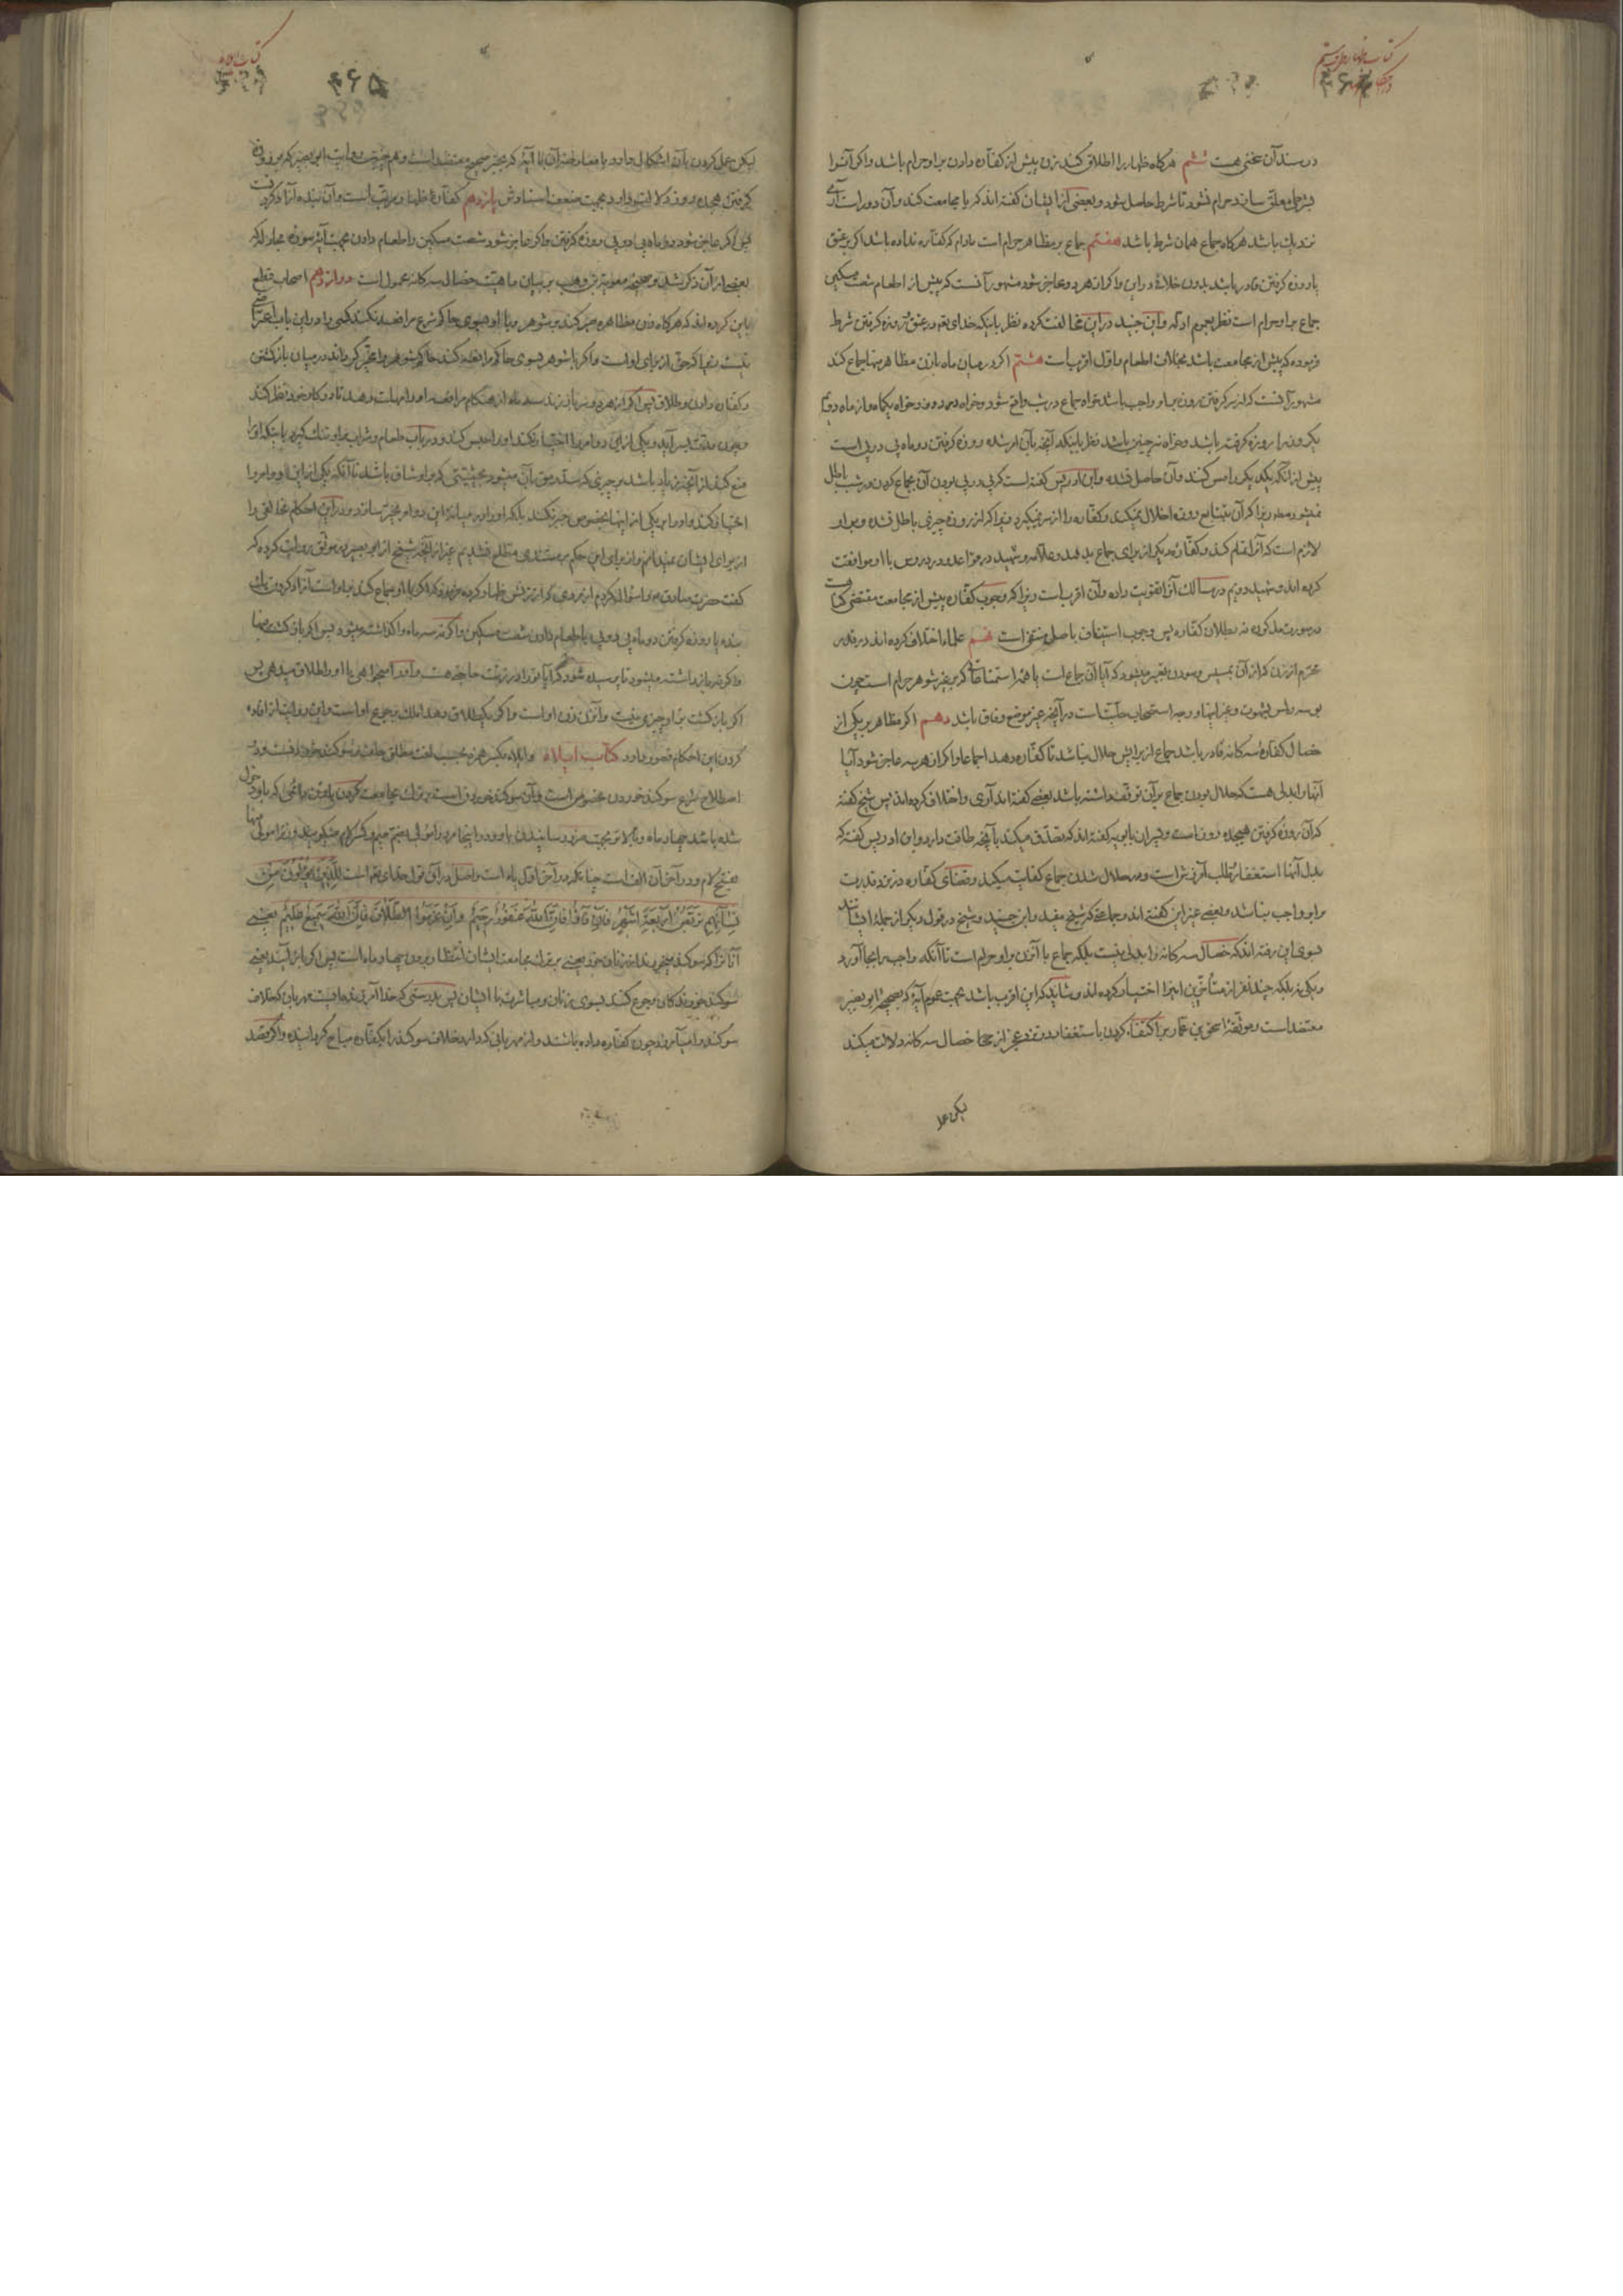 در سند آن سخنی هست ششم هرگاه ظهار را اطلاق کند زن پیش از کفاره دادن بر او حرام باشد و اگر آنرا
بشرطی معلق سازد حرام نشود تا شرط حاصل شود و بعضی از ایشان گفته‌اند که یا مجامعت کند و آن دور است آری
نزدیک باشد هرگاه جماع همان شرط باشد هفتم جماع بر مظاهر حرام است مادام که کفاره نداده باشد اگر بر عتق
یا روزه گرفتن قادر باشد بدون خلاف در این و اگر از هر دو عاجز شود مشهور آنست که پیش از اطعام شصت مسکین
جماع بر او حرام است نظر بعموم ادله و ابن جنید در این مخالفت کرده نظر باینکه خدای تعالی در عتق و روزه گرفتن شرط
فرموده که پیش از مجامعت باشد بخلاف اطعام و اول اقرب است هشتم اگر در میان ماه با زن مظاهر بها جماع کند
مشهور آنست که از سر گرفتن روزه بر او واجب باشد خواه جماع در شب واقع شود و خواه در روز و خواه یکماه و از ماه دویم
یکروز را روزه گرفته باشد و خواه نه چنین باشد نظر باینکه آنچه بآن امر شده روزه گرفتن دو ماه پی در پی است
پیش از آنکه یکدیگر را مس کنند و آن حاصل نشده و ابن ادریس گفته است که پی در پی بودن آن بجماع کردن در شب باطل
نمیشود مطلقا زیرا که آن بتتابع روزه اخلال نمیکند و کفاره را از سر نمیگیرد زیرا که از روزه چیزی باطل نشده و بر او
لازم است که آنرا تمام کند و کفاره دیگر از برای جماع بدهد و علامه و شهید در قواعد و در دروس با او موافقت
کرده‌اند و شهید دویم در مسالک آنرا تقویت داده و آن اقرب است زیرا که وجوب کفاره پیش از مجامعت مقتضی کفارت
در صورت مذکوره نه بطلان کفاره پس وجوب استیناف باصل منتفی است نهم علما اختلاف کرده‌اند در قدر
محرم از زن که از آن بمسیس و سودن تعبیر میشود که آیا آن جماع است یا همه استمتاعاتی که بر غیر شوهر حرام است چون
بوسه و لمس بشهوت و غیر اینها و وجه استصحاب حلیت است در آنچه غیر موضع وفاق باشد دهم اگر مظاهر بر یکی از
خصال کفاره سه گانه قادر باشد جماع از برایش حلال نباشد تا کفاره دهد اجماعا و اگر از هر سه عاجز شود آیا
آنها را بدلی هست که حلال بودن جماع بر آن توقف داشته باشد بعضی گفته‌اند آری و اختلاف کرده‌اند پس شیخ گفته
که آن روزه گرفتن هیجده روز است و پسران بابویه گفته‌اند که تصدق میکند بآنچه طاقت دارد و ابن ادریس گفته که
بدل آنها استغفار و طلب آمرزش است و در حلال شدن جماع کفایت میکند و قضای کفاره در نزد قدرت
بر او واجب نباشد و بعضی غیر این گفته‌اند و جماعتی که شیخ مفید و ابن جنید و شیخ در قول دیگر از جمله ایشانند
بسوی این رفته‌اند که خصال سه گانه را بدلی نیست بلکه جماع با آن زن بر او حرام است تا آنکه واجب را بجا آورد
و یکی نه بلکه چند نفر از متأخرین اینرا اختیار کرده‌اند و شاید که این اقرب باشد بجهت عموم آیه که بصحیحه ابو بصیر
معتضد است و موثقه اسحق بن عمار بر اکتفا کردن باستغفار در نزد عجز از خصال سه گانه دلالت میکند
لیکن عمل
۴۶۵
کتاب ایلاء
لیکن عمل کردن بآن اشکال دارد با معارضه آن با آیه که بخبر صحیح معتضد است و هم چنین روایت ابو بصیر که بر روزه
گرفتن هیجده روز دلالت دارد بجهت ضعف اسنادش یازدهم کفاره ظهار مرتب است و آن بنده آزاد کردنست
پس اگر عاجز شود دو ماه پی در پی روزه گرفتن و اگر عاجز شود شصت مسکین را طعام دادن بجهت آیه سوره مجادله که
بعضی از آن ذکر شد و صحیحه معویة بن وهب بر بیان ماهیت خصال سه گانه محمول است دوازدهم اصحاب قطع
باین کرده‌اند که هرگاه زن مظاهره صبر کند بر شوهر و با او بسوی حاکم شرع مرافعه نکند کسی را در این باب اعتراضی
نیست زیرا که حق از برای او است و اگر با شوهر بسوی حاکم مرافعه کند حاکم شوهر را مخیر گرداند در میان بازگشتن
و کفاره دادن و طلاق پس اگر از هر دو سر باز زند سه ماه از هنگام مرافعه او را مهلت دهد تا در کار خود نظر کند
و چون مدت بسر آید و یکی از این دو امر را اختیار نکند او را حبس کند و در باب طعام و شراب بر او تنگ گیرد باینکه او را
منع کند از آنچه زیاد باشد بر چیزی که سد رمق بآن میشود بحیثیتی که بر او شاق باشد تا آنکه یکی از این دو امر را
اختیار کند و او را بر یکی از اینها بخصوص جبر نکند بلکه او را در میانه این دو امر مخیر سازد و در این احکام مخالفی را
از برای ایشان نمیدانم و از برای این حکم بر مستندی مطلع نشدیم غیر از آنچه شیخ از ابو بصیر در موثق روایت کرده که
گفت حضرت صادق را سؤال کردم از مردی که از زنش ظهار کرده فرمود که اگر با او جماع کند بر او است آزاد کردن یک
بنده یا روزه گرفتن دو ماه پی در پی یا طعام دادن شصت مسکین و اگر نه سه ماه واگذاشته میشود پس اگر بازگشت فبها
و اگر نه بازداشته میشود تا پرسیده شود که آیا ترا در زنت حاجتی هست و او را میخواهی یا او را طلاق میدهی پس
اگر بازگشت بر او چیزی نیست و آن زن زن او است و اگر یکطلاق دهد املک برجوع او است و این روایت از افاده
کردن این احکام قصور دارد کتاب ایلاء و ایلاء بکسر همزه بحسب لغت مطلق حلف و سوگند خوردنست و در
اصطلاح شرع سوگند خوردن مخصوص است و آن سوگند خوردن است بر ترک مجامعت کردن با زن دائمی که باو دخول
شده باشد چهار ماه و بالاتر بجهت ضرر رسانیدن باو و در اینجا مرد را مولی بضم میم و کسر لام میگویند و زنرا مولی منها
بفتح لام و در آخر آن الف است چنانکه در آخر اول یاء است و اصل در آن قول خدای تعالی است لِلَّذِینَ یُؤْلُونَ مِنْ
نِسَائِهِمْ تَرَبُّصُ أَرْبَعَةِ أَشْهُرٍ فَإِنْ فَاؤُا فَإِنَّ اللّٰهَ غَفُورٌ رَحِیمٌ وَإِنْ عَزَمُوا الطَّلَاقَ فَإِنَّ اللّٰهَ سَمِیعٌ عَلِیمٌ یعنی
آنانرا که سوگند میخورند از زنان خود یعنی بر ترک مجامعت ایشان انتظار بردن چهار ماه است پس اگر باز آیند یعنی
سوگند خورندگان رجوع کنند بسوی زنان و مباشرت با ایشان پس بدرستی که خدا آمرزنده ایست مهربان که خلاف
سوگند را میآمرزد چون کفاره داده باشند و از مهربانی که دارد خلاف سوگند را بکفاره مباح گردانیده و اگر قصد